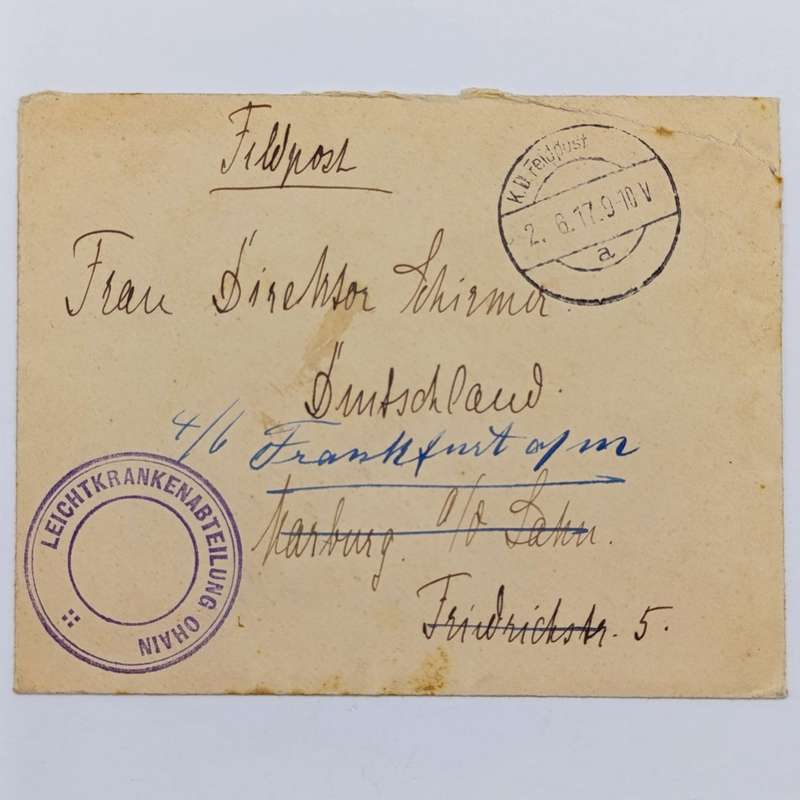 Feldpost
K.D. Feldpost
2. 6. 17. 9-10 V
a
Frau Direktor Schirmer.
Deutschland.
4/6 Frankfurt a/m
Marburg. a/d Lahn.
Friedrichstr. 5.
LEICHTKRANKENABTEILUNG OHAIN